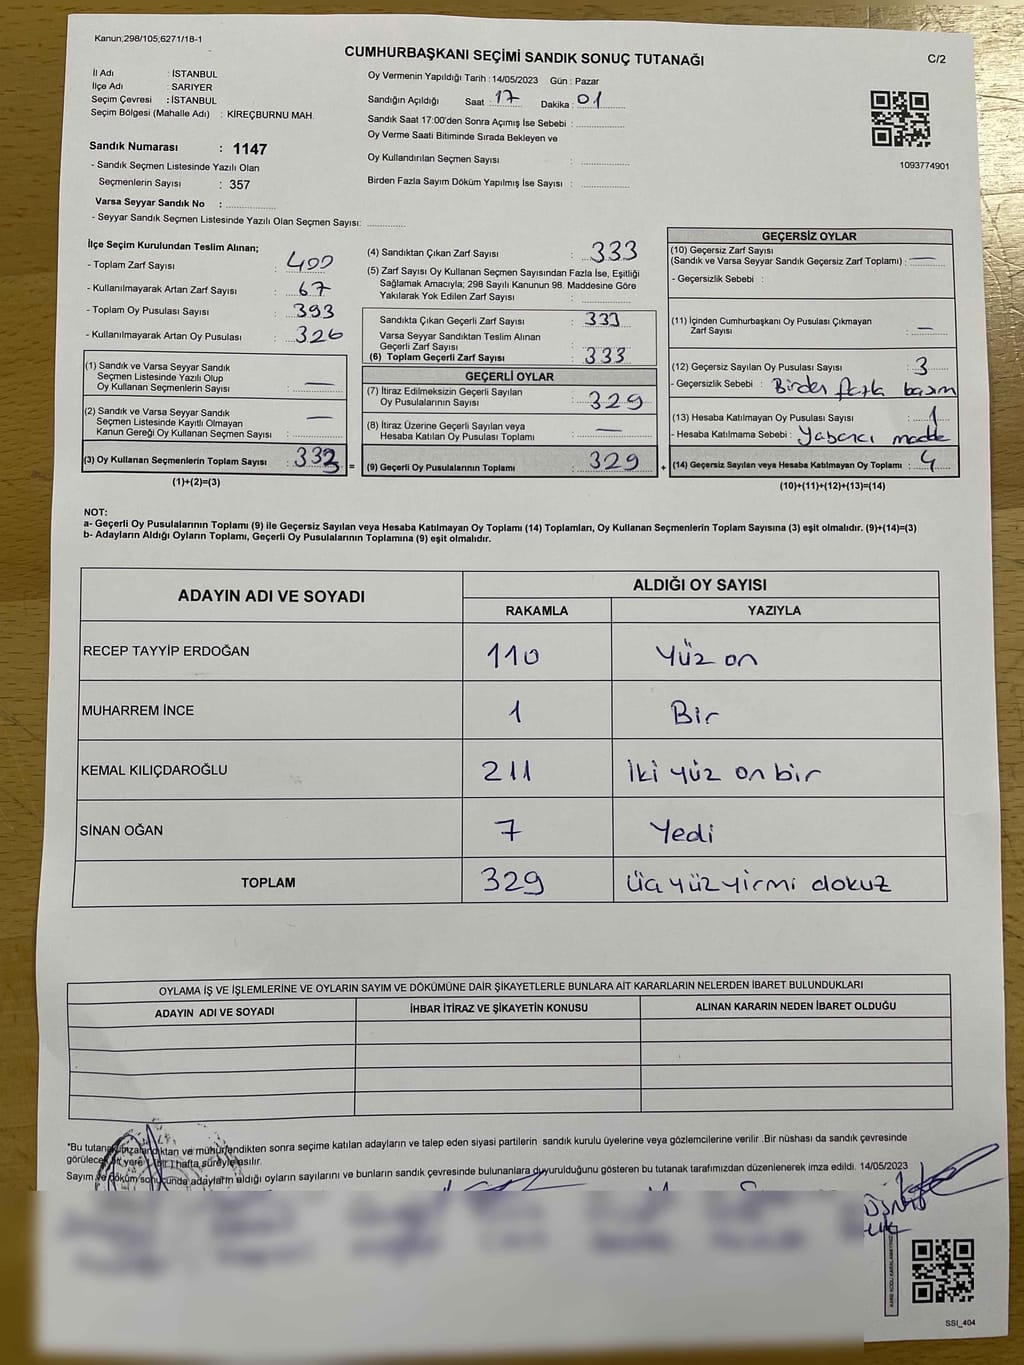 Kanun;298/105;6271/18-1
CUMHURBAŞKANI SEÇİMİ SANDIK SONUÇ TUTANAĞI
C/2
İl Adı : İSTANBUL
İlçe Adı : SARIYER
Seçim Çevresi : İSTANBUL
Seçim Bölgesi (Mahalle Adı) : KİREÇBURNU MAH.
Oy Vermenin Yapıldığı Tarih : 14/05/2023 Gün : Pazar
Sandığın Açıldığı Saat : 17 Dakika : 01
Sandık Saat 17:00'den Sonra Açımış İse Sebebi :
Oy Verme Saati Bitiminde Sırada Bekleyen ve
Oy Kullandırılan Seçmen Sayısı :
Birden Fazla Sayım Döküm Yapılmış İse Sayısı :
1093774901
Sandık Numarası : 1147
- Sandık Seçmen Listesinde Yazılı Olan
Seçmenlerin Sayısı : 357
Varsa Seyyar Sandık No :
- Seyyar Sandık Seçmen Listesinde Yazılı Olan Seçmen Sayısı:
İlçe Seçim Kurulundan Teslim Alınan;
- Toplam Zarf Sayısı : 400
- Kullanılmayarak Artan Zarf Sayısı : 67
- Toplam Oy Pusulası Sayısı : 393
- Kullanılmayarak Artan Oy Pusulası : 326
(1) Sandık ve Varsa Seyyar Sandık
Seçmen Listesinde Yazılı Olup
Oy Kullanan Seçmenlerin Sayısı : —
(2) Sandık ve Varsa Seyyar Sandık
Seçmen Listesinde Kayıtlı Olmayan
Kanun Gereği Oy Kullanan Seçmen Sayısı : —
(3) Oy Kullanan Seçmenlerin Toplam Sayısı : 333
(1)+(2)=(3)
(4) Sandıktan Çıkan Zarf Sayısı : 333
(5) Zarf Sayısı Oy Kullanan Seçmen Sayısından Fazla İse, Eşitliği
Sağlamak Amacıyla; 298 Sayılı Kanunun 98. Maddesine Göre
Yakılarak Yok Edilen Zarf Sayısı :
Sandıkta Çıkan Geçerli Zarf Sayısı : 333
Varsa Seyyar Sandıktan Teslim Alınan
Geçerli Zarf Sayısı :
(6) Toplam Geçerli Zarf Sayısı : 333
GEÇERLİ OYLAR
(7) İtiraz Edilmeksizin Geçerli Sayılan
Oy Pusulalarının Sayısı : 329
(8) İtiraz Üzerine Geçerli Sayılan veya
Hesaba Katılan Oy Pusulası Toplamı : —
= (9) Geçerli Oy Pusulalarının Toplamı : 329 +
GEÇERSİZ OYLAR
(10) Geçersiz Zarf Sayısı
(Sandık ve Varsa Seyyar Sandık Geçersiz Zarf Toplamı) : —
- Geçersizlik Sebebi :
(11) İçinden Cumhurbaşkanı Oy Pusulası Çıkmayan
Zarf Sayısı : —
(12) Geçersiz Sayılan Oy Pusulası Sayısı : 3
- Geçersizlik Sebebi : Birden fazla basım
(13) Hesaba Katılmayan Oy Pusulası Sayısı : 1
- Hesaba Katılmama Sebebi : Yabancı madde
(14) Geçersiz Sayılan veya Hesaba Katılmayan Oy Toplamı : 4
(10)+(11)+(12)+(13)=(14)
NOT:
a- Geçerli Oy Pusulalarının Toplamı (9) ile Geçersiz Sayılan veya Hesaba Katılmayan Oy Toplamı (14) Toplamları, Oy Kullanan Seçmenlerin Toplam Sayısına (3) eşit olmalıdır. (9)+(14)=(3)
b- Adayların Aldığı Oyların Toplamı, Geçerli Oy Pusulalarının Toplamına (9) eşit olmalıdır.
ADAYIN ADI VE SOYADI
ALDIĞI OY SAYISI
RAKAMLA YAZIYLA
RECEP TAYYİP ERDOĞAN 110 Yüz on
MUHARREM İNCE 1 Bir
KEMAL KILIÇDAROĞLU 211 İki yüz on bir
SİNAN OĞAN 7 Yedi
TOPLAM 329 Üç yüz yirmi dokuz
OYLAMA İŞ VE İŞLEMLERİNE VE OYLARIN SAYIM VE DÖKÜMÜNE DAİR ŞİKAYETLERLE BUNLARA AİT KARARLARIN NELERDEN İBARET BULUNDUKLARI
ADAYIN ADI VE SOYADI İHBAR İTİRAZ VE ŞİKAYETİN KONUSU ALINAN KARARIN NEDEN İBARET OLDUĞU
*Bu tutanak imzalandıktan ve mühürlendikten sonra seçime katılan adayların ve talep eden siyasi partilerin sandık kurulu üyelerine veya gözlemcilerine verilir .Bir nüshası da sandık çevresinde
görülecek bir yere 1 (bir) hafta süreyle asılır.
Sayım ve döküm sonucunda adayların aldığı oyların sayılarını ve bunların sandık çevresinde bulunanlara duyurulduğunu gösteren bu tutanak tarafımızdan düzenlenerek imza edildi. 14/05/2023
KARE KODU KARALAMAYINIZ
SSI_404